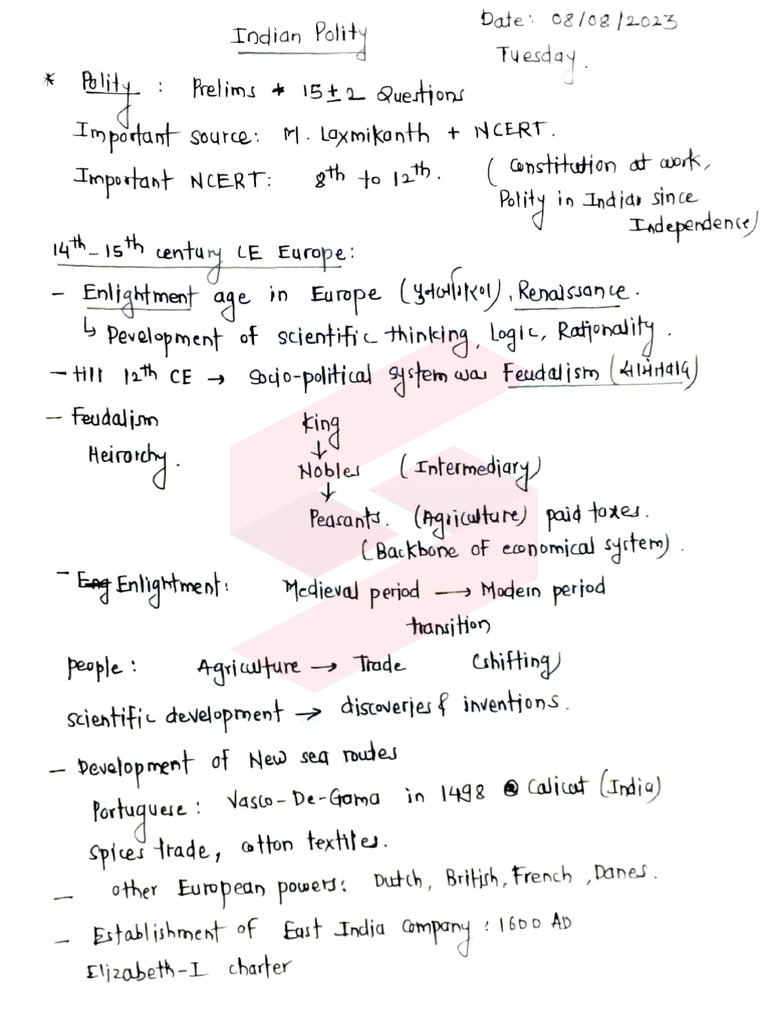 Indian Polity
Date: 08/08/2023
Tuesday.
* Polity : Prelims → 15 ± 2 Questions
Important source: M. Laxmikanth + NCERT.
Important NCERT: 8th to 12th. (Constitution at work,
Polity in Indian since
Independence)
14th-15th century CE Europe:
- Enlightment age in Europe (), Renaissance.
↳ Development of scientific thinking, Logic, Rationality.
- till 12th CE → Socio-political system was Feudalism ()
- Feudalism King
↓
Heirarchy. Nobles (Intermediary)
↓
Peasants. (Agriculture) paid taxes.
(Backbone of economical system).
- Enlightment: Medieval period → Modern period
transition
people: Agriculture → Trade (shifting)
scientific development → discoveries & inventions.
- Development of New sea routes
Portuguese: Vasco-De-Gama in 1498 @ Calicut (India)
spices trade, cotton textiles.
- other European powers: Dutch, British, French, Danes.
- Establishment of East India Company : 1600 AD
Elizabeth-I charter